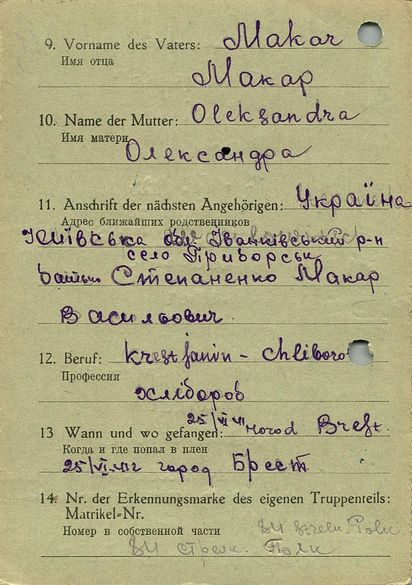 9. Vorname des Vaters: Makar
Имя отца
Макар
10. Name der Mutter: Oleksandra
Имя матери
Олександра
11. Anschrift der nächsten Angehörigen: Україна
Адрес ближайших родственников
Київська обл Іванківський р-н
село Приборськ
батько Степаненко Макар
Васильович
12. Beruf: krestjanin - chliborob
Профессия
хлібороб
25/VI 41
13 Wann und wo gefangen: Horod Brest
Когда и где попал в плен
25/VI-41г город Брест
14. Nr. der Erkennungsmarke des eigenen Truppenteils:
Matrikel-Nr.
Номер в собственной части
84 strelk. Polk
84 стрелк. Полк